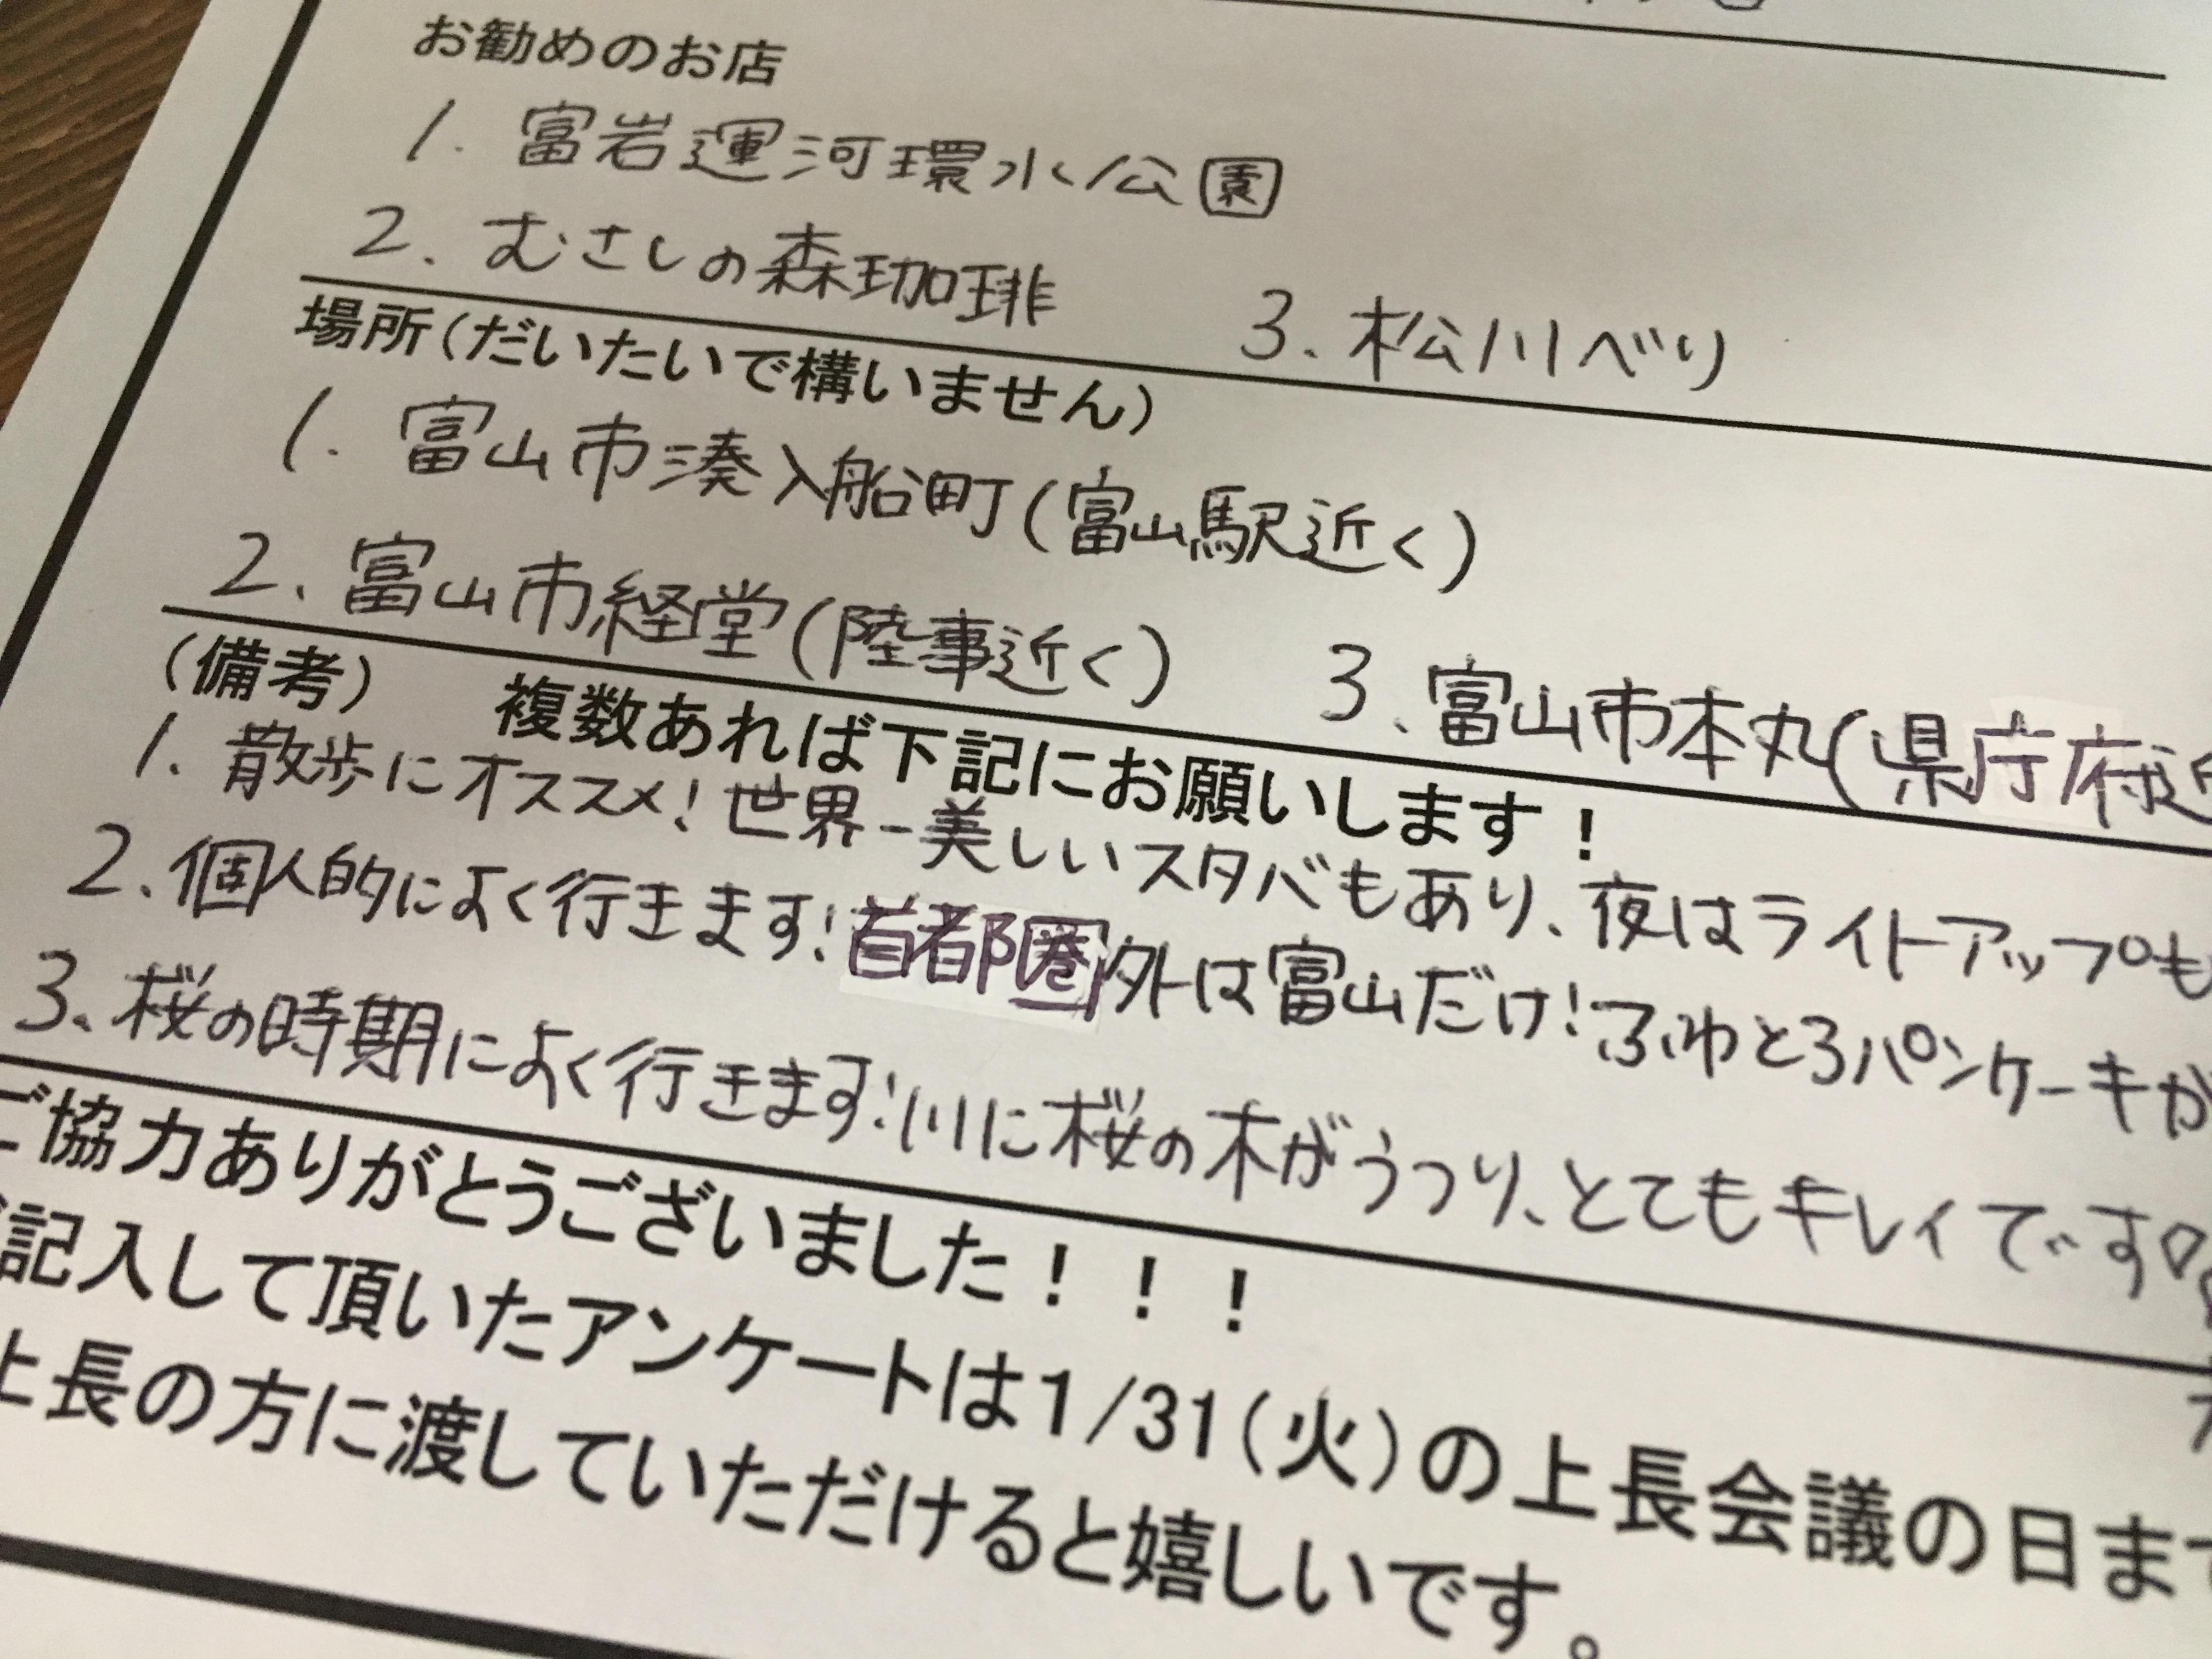 お勧めのお店
1. 富岩運河環水公園
2. むさしの森珈琲 3. 松川べり
場所(だいたいで構いません)
1. 富山市湊入船町(富山駅近く)
2. 富山市経堂(陸事近く) 3. 富山市本丸(県庁府近
(備考) 複数あれば下記にお願いします!
1. 散歩にオススメ! 世界一美しいスタバもあり、夜はライトアップも
2. 個人的によく行きます! 首都圏外は富山だけ! ふわとろパンケーキが
3. 桜の時期によく行きます! 川に桜の木がうつり、とてもキレイです
ご協力ありがとうございました!!!
ご記入して頂いたアンケートは1/31(火)の上長会議の日まで
上長の方に渡していただけると嬉しいです。